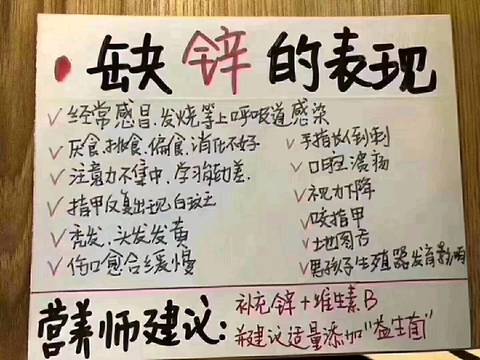 缺锌的表现
经常感冒、发烧等上呼吸道感染
厌食、挑食、偏食、消化不好
注意力不集中、学习能力差、
指甲反复出现白斑
秃发、头发发黄
伤口愈合缓慢
手指长倒刺
口腔溃疡
视力下降
咬指甲
地图舌
男孩子生殖器发育影响
营养师建议:
补充锌+维生素B
并建议适量添加"益生菌"